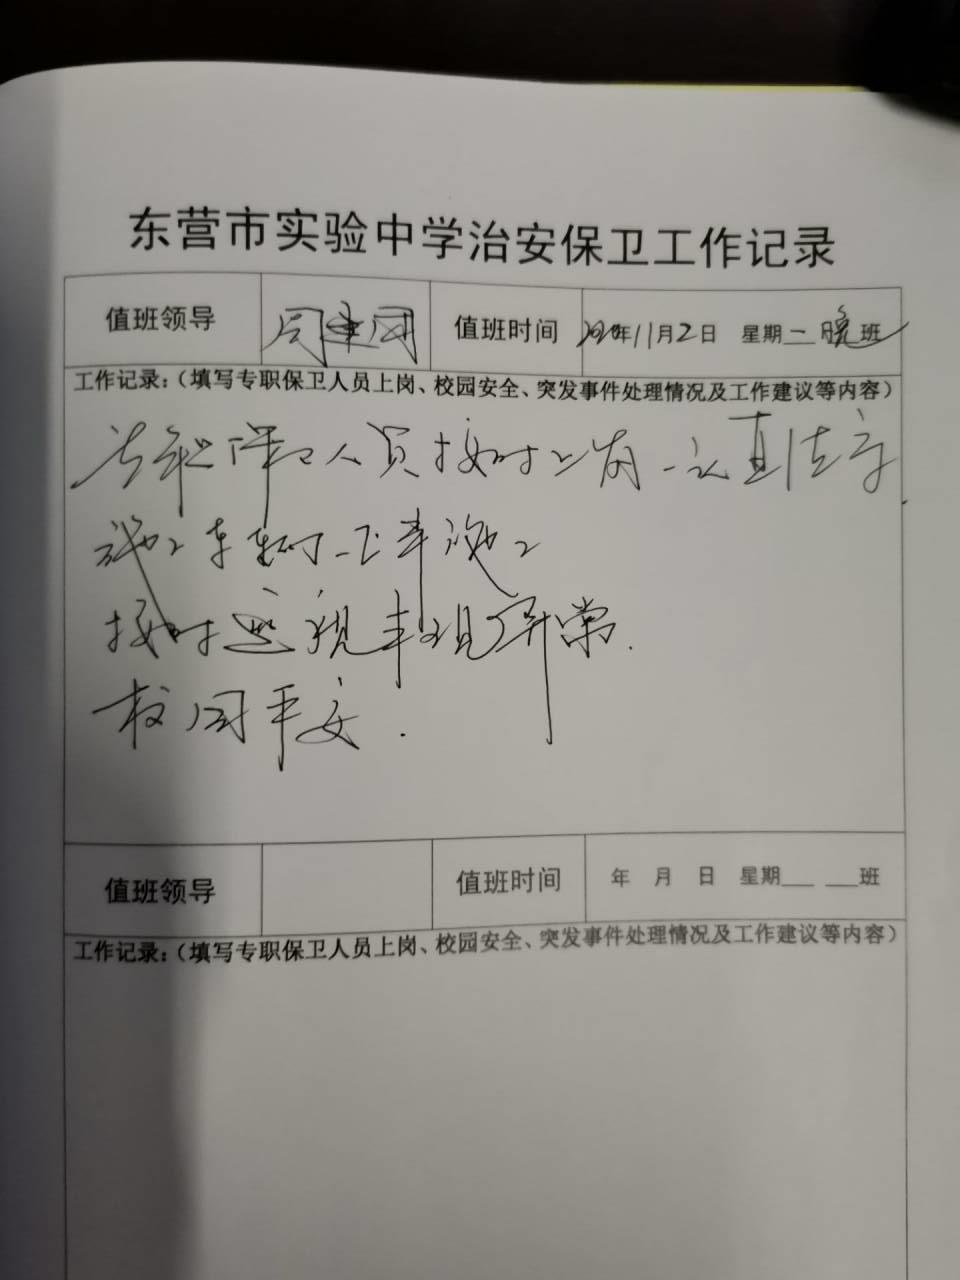 东营市实验中学治安保卫工作记录
值班领导 周建国 值班时间 2020年11月2日 星期一 晚班
工作记录:(填写专职保卫人员上岗、校园安全、突发事件处理情况及工作建议等内容)
专职保卫人员按时上岗
车辆
按时巡视未发现异常.
校园平安.
值班领导 值班时间 年 月 日 星期___ ___班
工作记录:(填写专职保卫人员上岗、校园安全、突发事件处理情况及工作建议等内容)